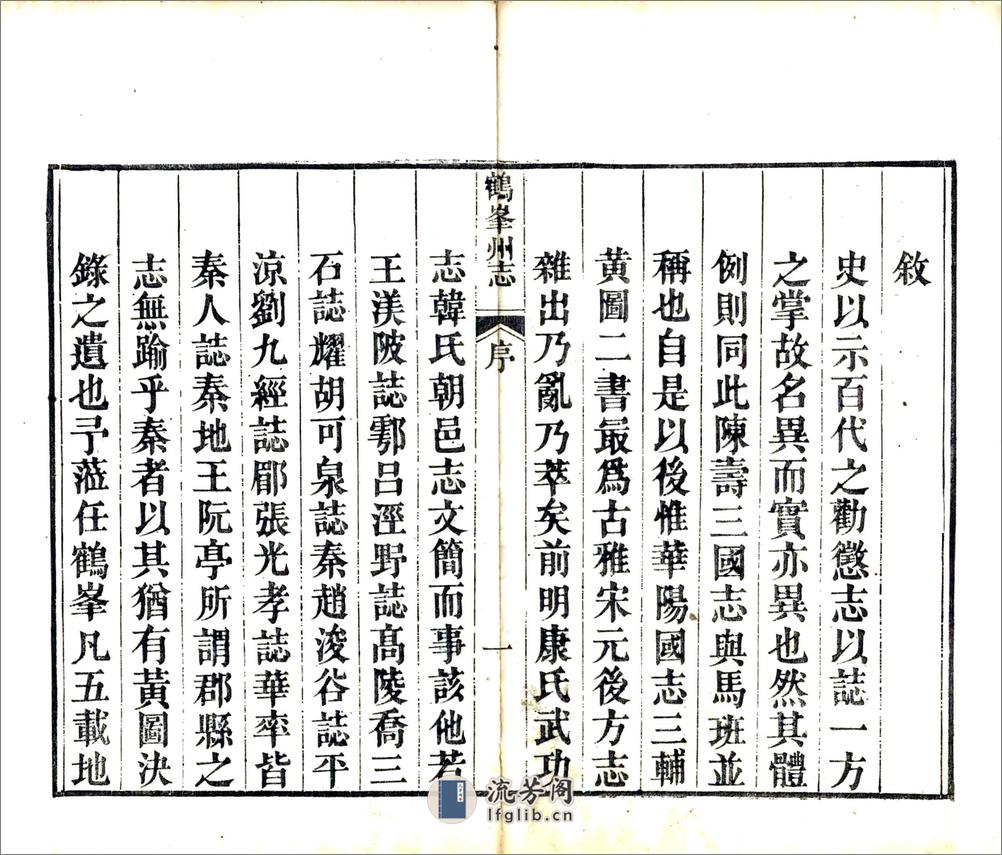 敘
史以示百代之勸懲志以誌一方
之掌故名異而實亦異也然其體
例則同此陳壽三國志與馬班並
稱也自是以後惟華陽國志三輔
黃圖二書最爲古雅宋元後方志
雜出乃亂乃萃矣前明康氏武功
鶴峯州志
序
一
志韓氏朝邑志文簡而事該他若
王渼陂誌鄠呂涇野誌髙陵喬三
石誌耀胡可泉誌秦趙浚谷誌平
涼劉九經誌郿張光孝誌華率皆
秦人誌秦地王阮亭所謂郡縣之
志無踰乎秦者以其猶有黃圖決
錄之遺也予蒞任鶴峯凡五載地
流芳阁
lfglib.cn